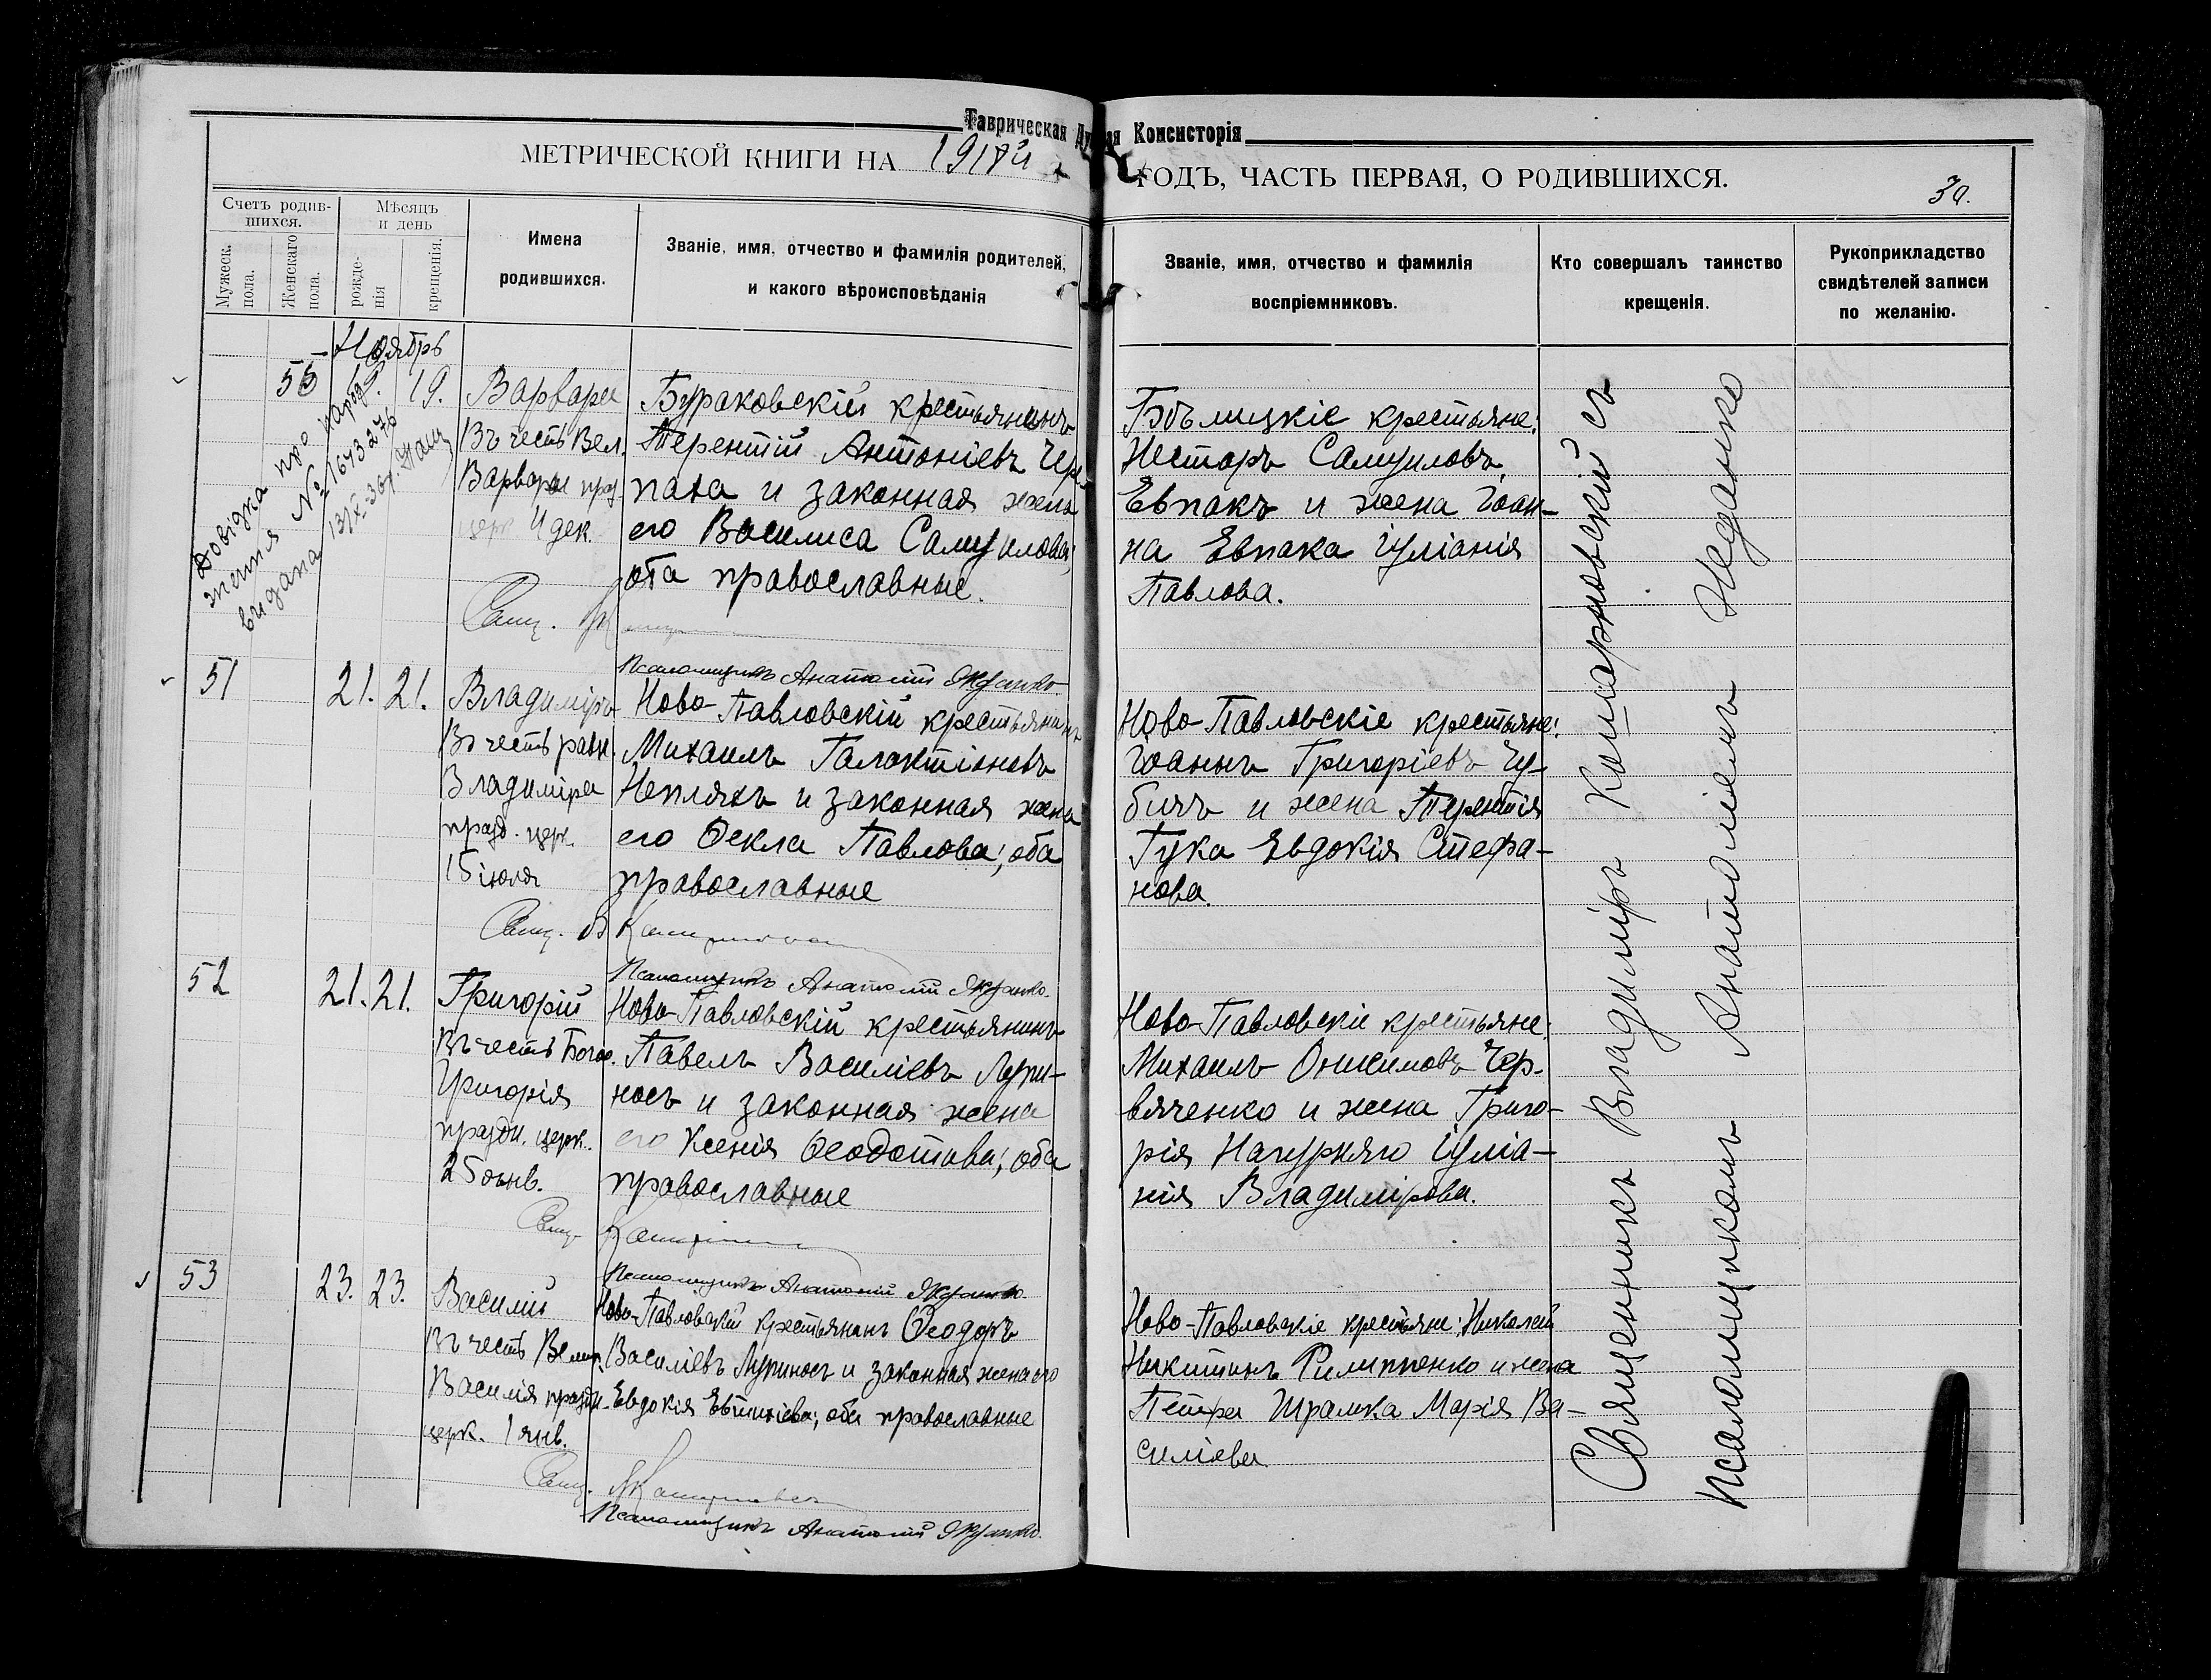 Таврическая Ду ая Консисторія
МЕТРИЧЕСКОЙ КНИГИ НА 1918й
ГОДЪ, ЧАСТЬ ПЕРВАЯ, О РОДИВШИХСЯ.
30.
Счетъ родив-
шихся.
Мужеск.
пола.
Женскаго
пола.
Мѣсяцъ
и день
рожде-
нія
крещенія.
Имена
родившихся.
Званіе, имя, отчество и фамилія родителей,
и какого вѣроисповѣданія
Званіе, имя, отчество и фамилія
воспріемниковъ.
Кто совершалъ таинство
крещенія.
Рукоприкладство
свидѣтелей записи
по желанію.
Ноябрь
55
19.
Варвара
Въ честь Вел.
Варвары праз.
церк. 4 дек.
Довідка про народ
ження № 1673276
видана 13/X.36
Бураковскій крестьянинъ
Терентій Антоніевъ Чер-
паха и законная жена
его Василиса Самуилова;
оба православные.
Свящ.
Псаломщикъ Анатолій
Бѣлицкіе крестьяне:
Несторъ Самуиловъ
Евпакъ и жена Іоан-
на Евпака Іуліанія
Павлова.
51
21. 21.
Владиміръ
Въ честь равн.
Владиміра
празд. церк.
15 іюля
Ново-Павловскій крестьянинъ
Михаилъ Галактіоновъ
Непляхъ и законная жена
его Ѳекла Павлова; оба
православные
Свящ. В
Псаломщикъ Анатолій
Ново-Павловскіе крестьяне:
Іоаннъ Григоріевъ Чу-
бичъ и жена Терентія
Гука Евдокія Стефа-
нова.
52
21. 21.
Григорій
Въ честь Богос.
Григорія
праздн. церк.
25 янв.
Ново-Павловскій крестьянинъ
Павелъ Василіевъ Лури-
носъ и законная жена
его Ксенія Ѳеодотова; оба
православные
Свящ.
Псаломщикъ Анатолій
Ново-Павловскіе крестьяне:
Михаилъ Онисимовъ Чер-
вяченко и жена Григо-
рія Нагурняго Іуліа-
нія Владимірова.
53
23. 23.
Василій
Въ честь Велик.
Василія праздн.
церк. 1 янв.
Ново-Павловскій крестьянинъ Ѳеодоръ
Василіевъ Луриносъ и законная жена его
Евдокія Евтихіева; оба православные
Свящ.
Псаломщикъ Анатолій
Ново-Павловскіе крестьяне: Николай
Никитинъ Филиппенко и жена
Петра Шрамка Марія Ва-
силіева
Священникъ Владиміръ Кошарновскій съ
псаломщикомъ Анатоліемъ